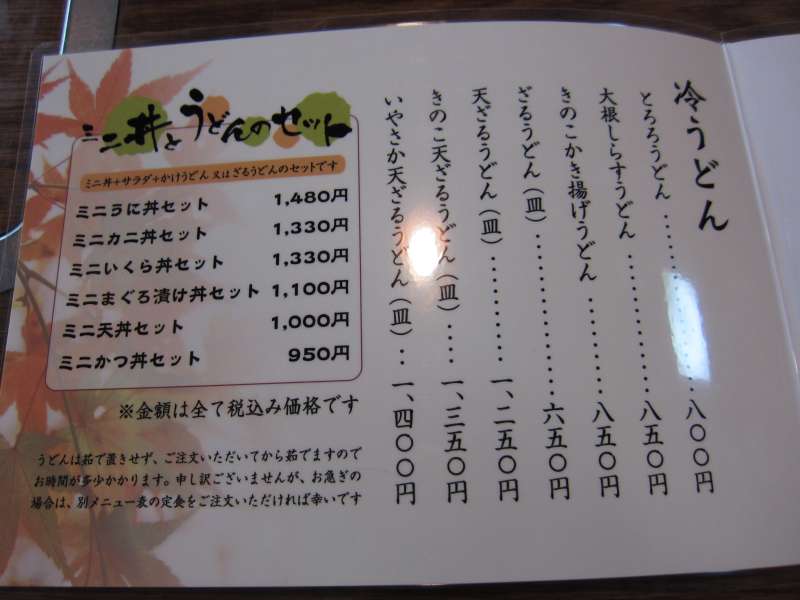 冷うどん
とろろうどん ……………… 八〇〇円
大根しらすうどん ……………… 八五〇円
きのこかき揚げうどん ……………… 八五〇円
ざるうどん（皿） ……………… 六五〇円
天ざるうどん（皿） ………… 一、二五〇円
きのこ天ざるうどん（皿） …… 一、三五〇円
いやさか天ざるうどん（皿） … 一、四〇〇円
ミニ丼とうどんのセット
ミニ丼+サラダ+かけうどん 又はざるうどんのセットです
ミニうに丼セット 1,480円
ミニカニ丼セット 1,330円
ミニいくら丼セット 1,330円
ミニまぐろ漬け丼セット 1,100円
ミニ天丼セット 1,000円
ミニかつ丼セット 950円
※金額は全て税込み価格です
うどんは茹で置きせず、ご注文いただいてから茹でますので
お時間が多少かかります。申し訳ございませんが、お急ぎの
場合は、別メニュー表の定食をご注文いただければ幸いです